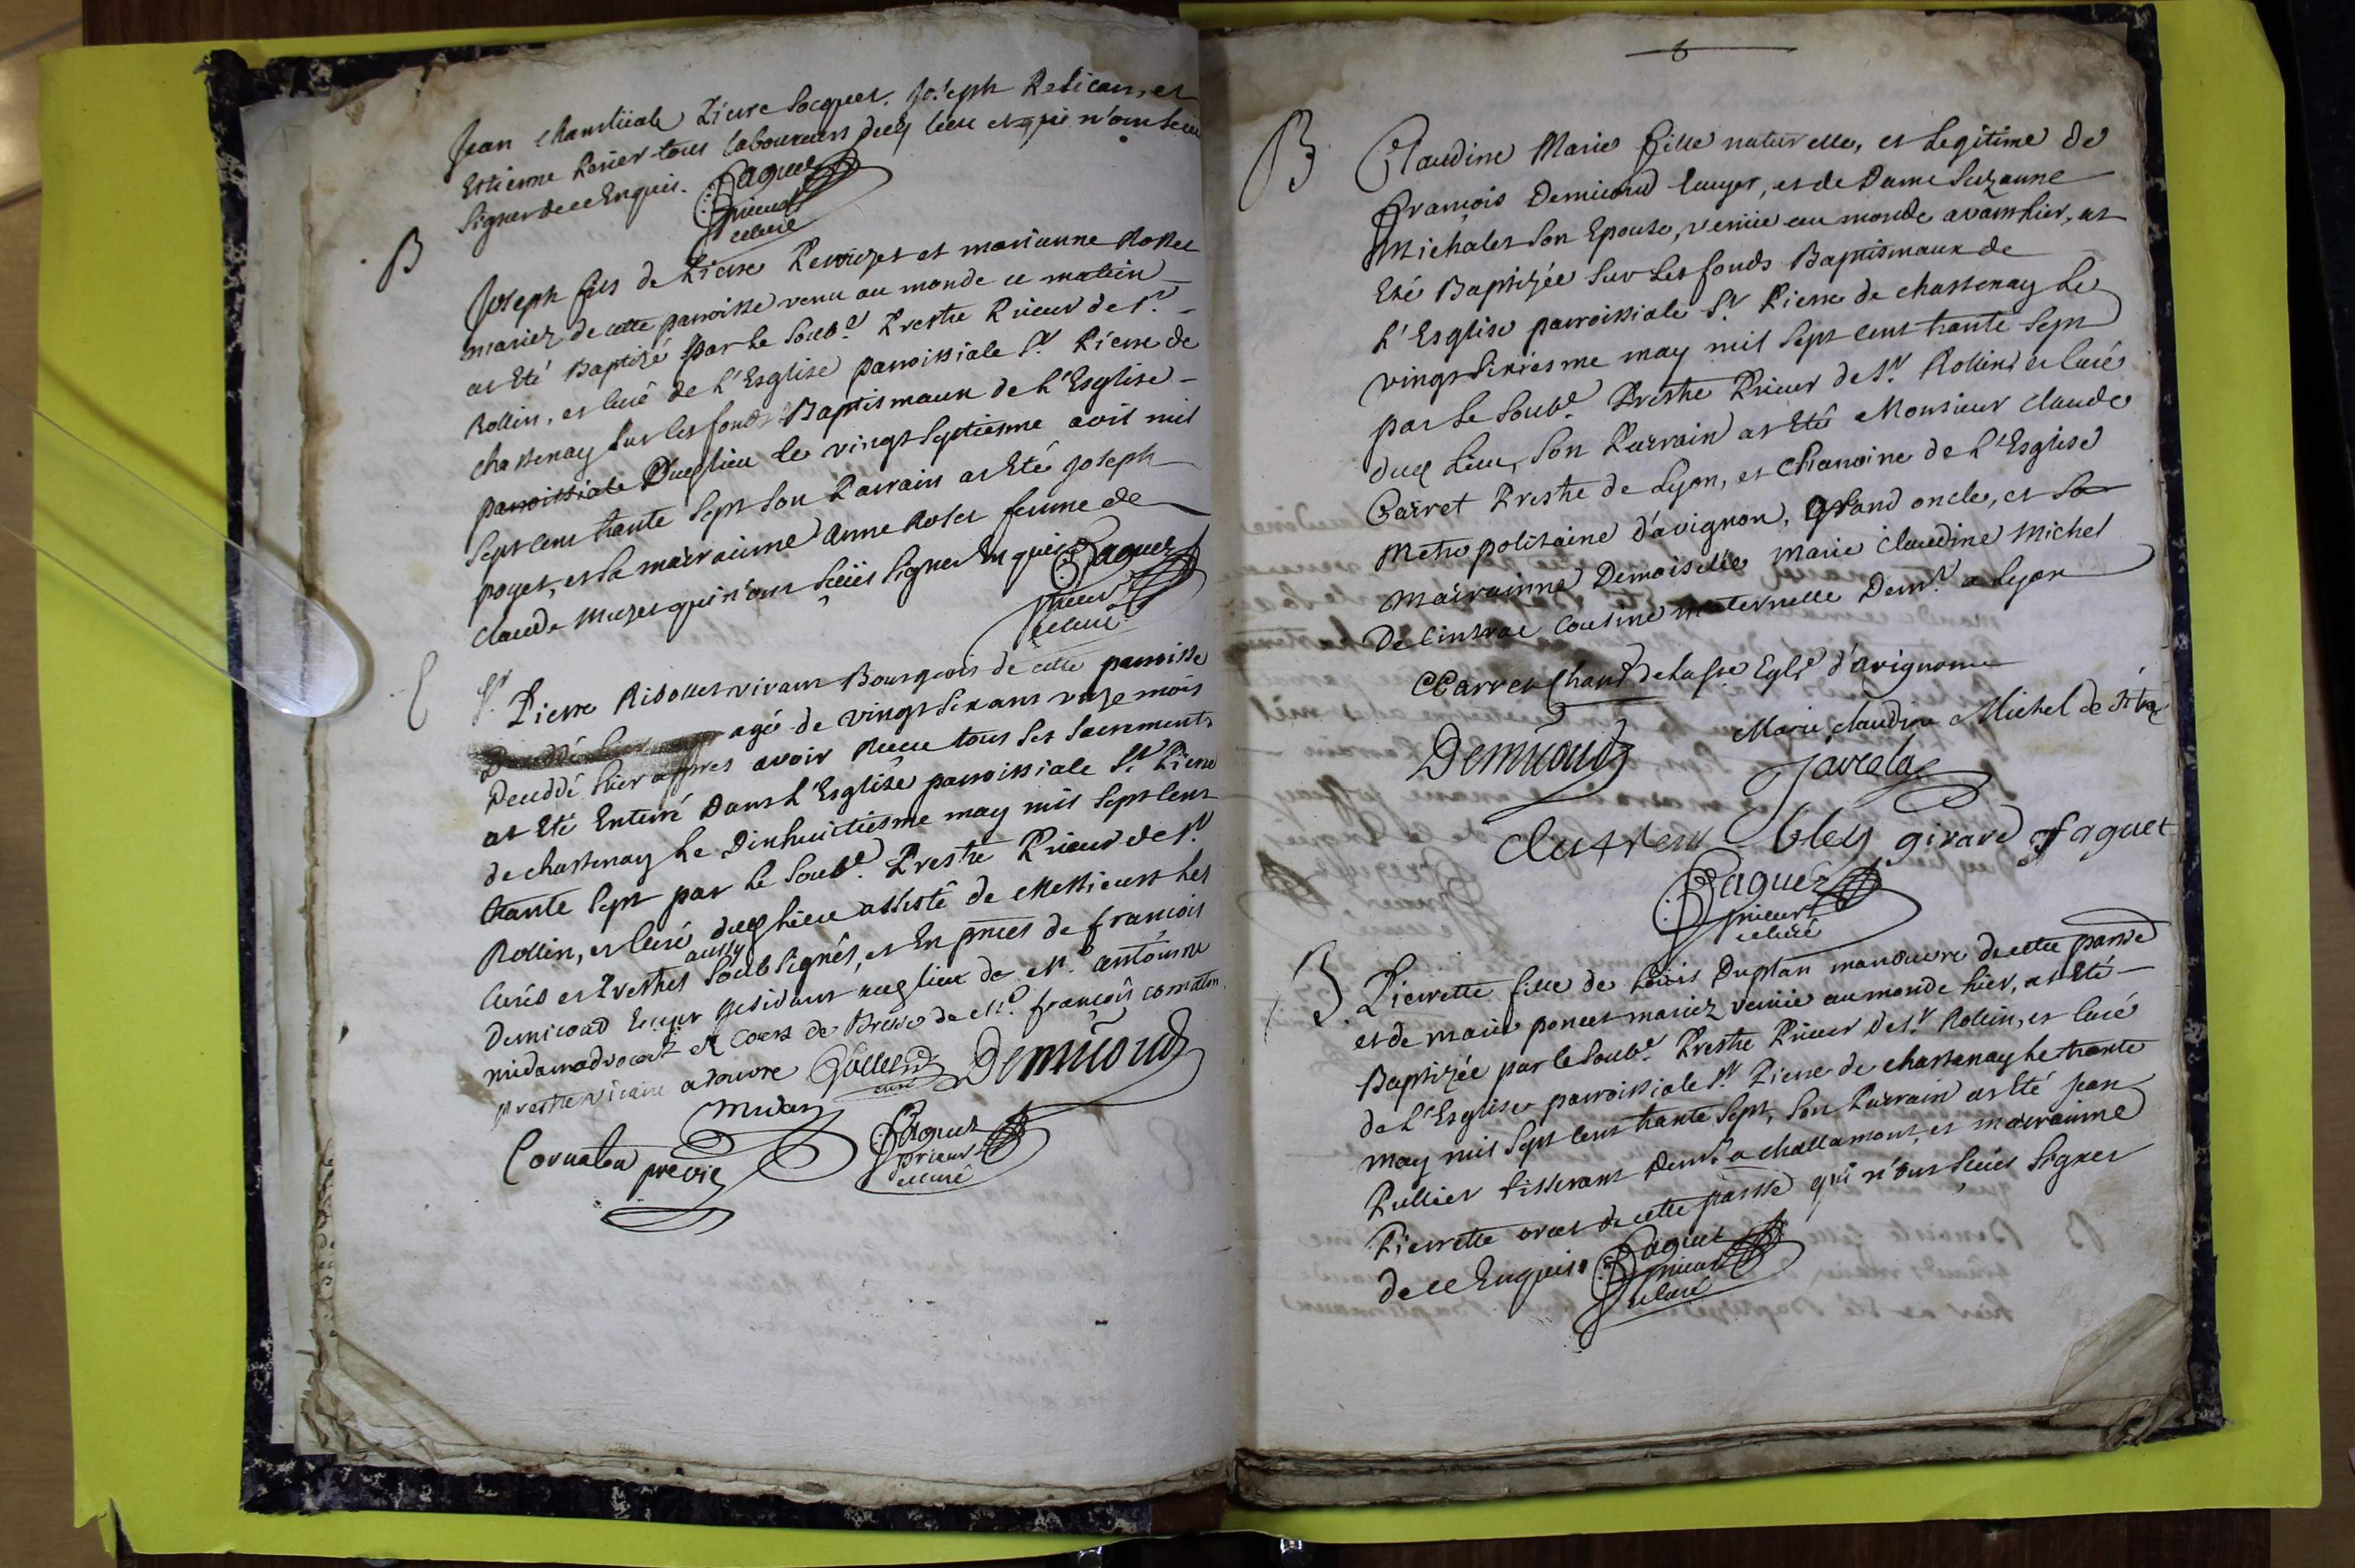 Jean Chamliiale Pierre Jocquet, Joseph Relican, et
Estienne Perier tous laboureurs ducs lieu et qui n'ont sceu
signer de ce Enquis. Faguet
prieur
et curé
B
Joseph fils de Pierre et marianne
mariez de cette parroisse venu au monde ce matin
at Eté Baptizé par le soub.é Prestre Prieur de St.
Rollin, et Curé de L'Esglise parroissiale St. Pierre de
chastenay sur les fonds Baptismaux de L'Esglise
parroissiale Ducq lieu le vingt septiesme avril mil
sept cent trante sept son Parrain at Eté Joseph
poget, et sa marrainne Anne Roset femme de
Claude Muzet qui n'ont sceus signer Enquis Faguet
prieur
et curé
E
Sr. Pierre vivant Bourgeois de cette parroisse
agé de vingt six ans unze mois
Deceddé hier appres avoir Receu tous ses sacrements
at Eté Enterré Dans L'Esglise parroissiale St. Pierre
de chastenay le Dixhuictiesme may mil sept cent
trante sept par le soub.é Prestre Prieur de St.
Rollin, et curé ducq lieu assisté de Messieurs les
aussy
Curés et Prestres soubsignés, et En pnces de francois
Demicoud Ecuyer residant aucq lieu de Mr. antoinne
midan advocat et de Bresse de Mr. françois cornaton
prestre vicaire Demicoud
curé
midan
Cornaton pre vic Faguet
prieur
et curé
6
B
Claudine Marie fille naturelle, et Legitime de
François Demicoud Ecuyer, et de Dame Suzanne
Michalet son Epouse, venüe au monde avanthier, at
Eté Baptizée sur les fonds Baptismaux de
L'Esglise parroissiale St. Pierre de chastenay le
vingt sixiesme may mil sept cent trante sept
par le soub.é Prestre Prieur de St. Rollin, et Curé
ducq Lieu, son Parrain at Eté Monsieur Claude
Carret Prestre de Lyon, et Chanoine de L'Esglise
Metropolitaine d'avignon, grand oncle, et sa
Marrainne Demoiselle Marie Claudine Michel
De cousine maternelle Demt. a Lyon
CCarret Chan. de la Ste Eglé d'avignon
Marie claudine Michel de
Demicoud
girard Faguet
Faguet
prieur
et curé
B
Pierrette fille de Loüis Duplan manouvre de cette parrse
et de marie poncet mariez venüe au monde hier, at Eté
Baptizée par le soub.é Prestre Prieur de St. Rollin, et Curé
de L'Esglise parroissiale St. Pierre de chastenay le trante
may mil sept cent trante sept, son Parrain at Eté Jean
Pullier tisserant Demt. a challamont, et marrainne
Pierrette de cette parsse qui n'ont sceus signer
de ce Enquis. Faguet
prieur
et curé